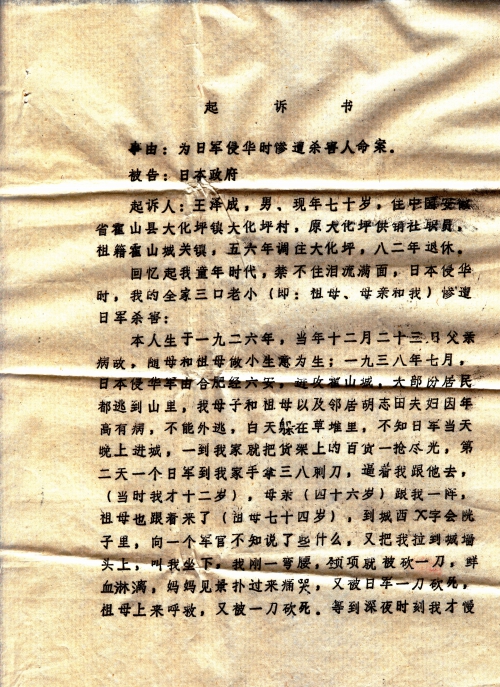 起 诉 书
事由：为日军侵华时惨遭杀害人命案。
被告：日本政府
起诉人：王泽成，男、现年七十岁，住中国安徽
省霍山县大化坪镇大化坪村，原大化坪供销社职员，
祖籍霍山城关镇，五六年调住大化坪，八二年退休。
回忆起我童年时代，禁不住泪流满面，日本侵华
时，我的全家三口老小（即：祖母、母亲和我）惨遭
日军杀害：
本人生于一九二六年，当年十二月二十三日父亲
病故，祖母和祖母做小生意为生；一九三八年七月，
日本侵华军由合肥经六安，进攻霍山城，大部份居民
都逃到山里，我母子和祖母以及邻居胡志田夫妇因年
高有病，不能外逃，白天躲在草堆里，不知日军当天
晚上进城，一到我家就把货架上的百货一抢尽光，第
二天一个日军到我家手拿三八刺刀，逼着我跟他去，
（当时我才十二岁），母亲（四十六岁）跟我一阵，
祖母也跟着来了（祖母七十四岁），到城西 字会院
子里，向一个军官不知说了些什么，又把我拉到城墙
头上，叫我坐下，我刚一弯腰，颈项就被砍一刀，鲜
血淋漓，妈妈见景扑过来痛哭，又被日军一刀砍死，
祖母上来呼救，又被一刀砍死。等到深夜时刻我才慢